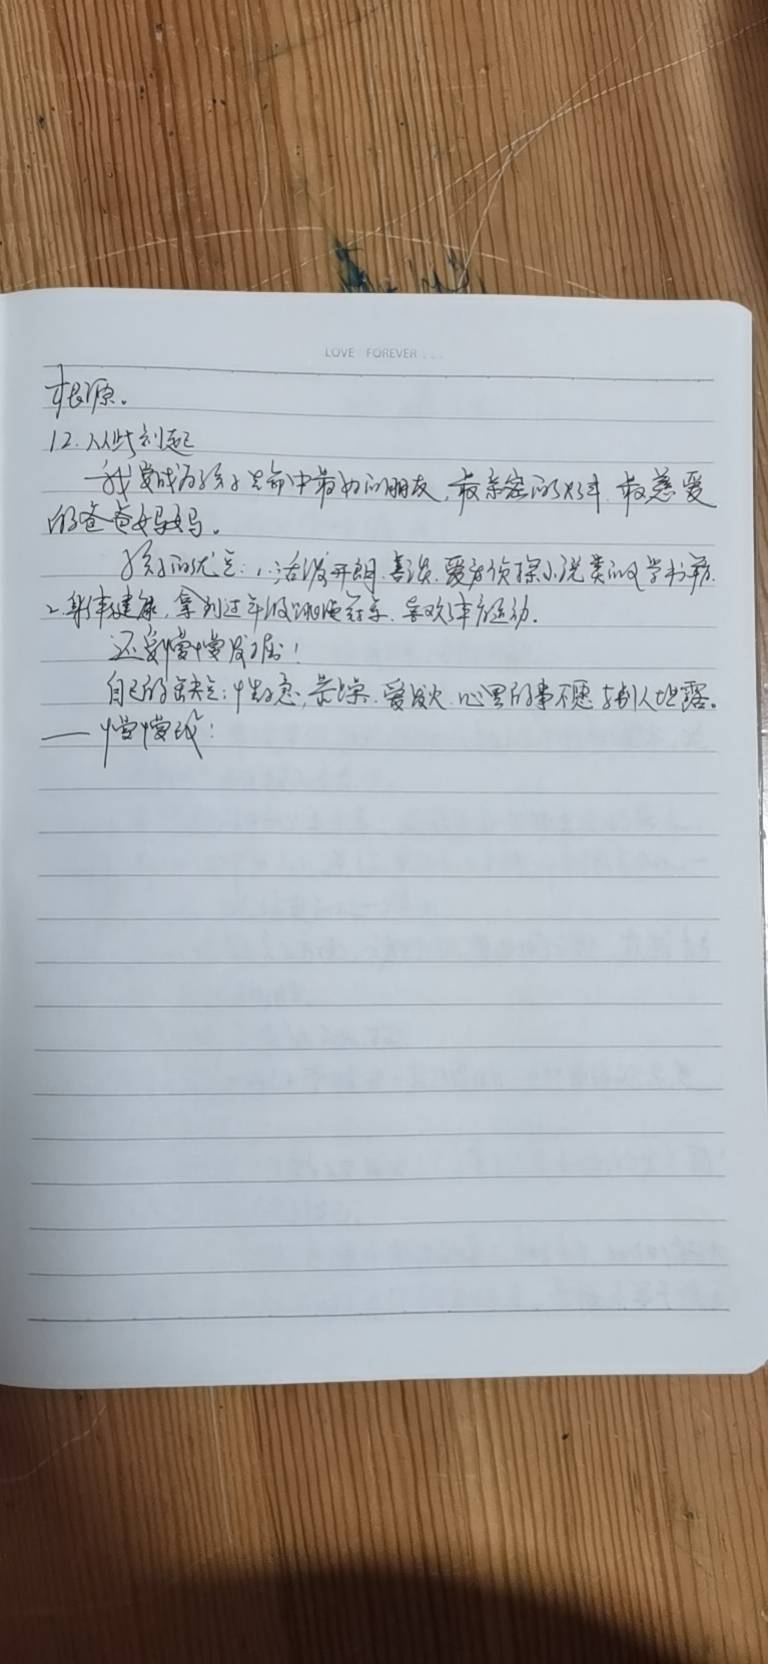 LOVE FOREVER
根源。
12.从此刻起
我要成为孩子生命中最好的朋友,最亲密的伙伴,最慈爱
的爸爸妈妈。
孩子的优点:1.活泼开朗,喜读,爱看侦探小说类的文学书籍.
2.身体健康,拿到过年级跳绳冠军.喜欢体育运动.
还要慢慢发掘!
自己的缺点:性急,暴躁.爱发火.心里的事不愿与别人吐露。
——慢慢改!